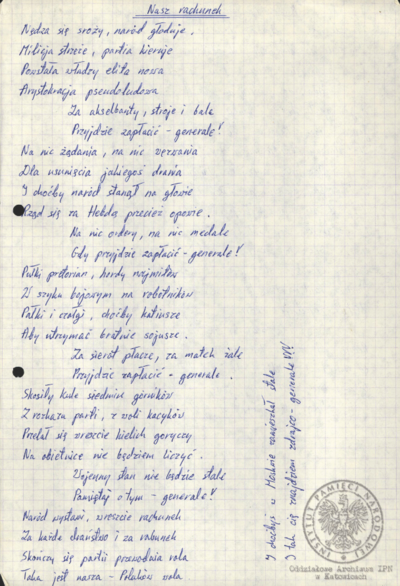 Nasz rachunek
Nędza się sroży, naród głoduje.
Milicja strzeże, partia kieruje
Powstała władzy elita nowa
Arystokracja pseudoludowa
Za akselbanty, stroje i bale
Przyjdzie zapłacić - generale!
Na nic żądania, na nic wezwania
Dla usunięcia jakiegoś drania
I choćby naród stanął na głowie
Rząd się za Hebdą przecież opowie.
Na nic ordery, na nic medale
Gdy przyjdzie zapłacić - generale!
Pułki pretorian, hordy najmitów
W szyku bojowym na robotników
Pałki i czołgi, choćby katiusze
Aby utrzymać bratnie sojusze.
Za sierot płacze, za matek żale
Przyjdzie zapłacić - generale.
Skosiły kule siedmiu górników
Z rozkazu partii, z woli kacyków
Przelał się wreszcie kielich goryczy
Na obietnice nie będziem liczyć.
Wojenny stan nie będzie stale
Pamiętaj o tym - generale!
Naród wystawi, wreszcie rachunek
Za każde draństwo i za rabunek
Skończy się partii przewodnia rola
Taka jest nasza - Polaków wola
I choćbyś w Moskwie zamieszkał stale
I tak cię znajdziem zdrajco - generale!!!
INSTYTUT PAMIĘCI NARODOWEJ
Oddziałowe Archiwum IPN
w Katowicach